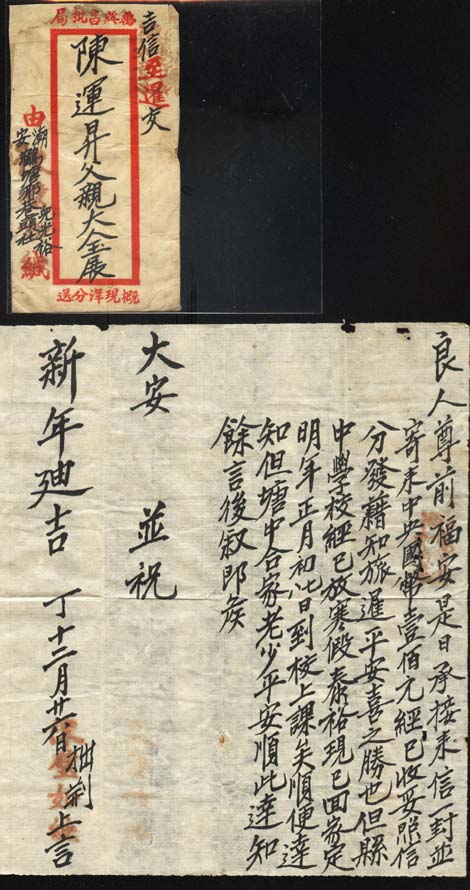 萬興昌批局
吉信至暹交
陳運昇父親大人玉展
由
潮安鶴塘鄉
兒光裕
緘
概現洋分送
良人尊前福安是日承接來信一封並
寄來中央國幣壹佰元經已收妥照信
分發藉知旅暹平安喜之勝也但縣
中學校經已放寒假泰裕現已回家定
明年正月初八日到校上課矣順便達
知但塘中合家老少平安順此達知
餘言後叙即矦
大安 並祝
新年廸吉 丁十二月廿六日 拙荆上言